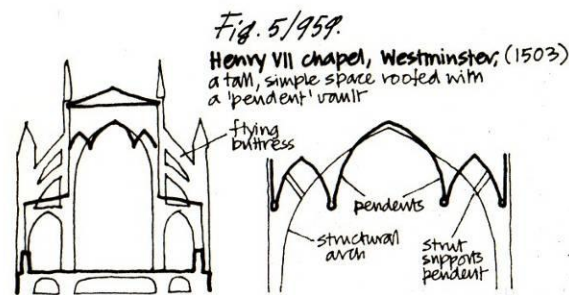 Fig. 5/959.
Henry VII chapel, Westminster, (1503)
a tall, simple space roofed with
a 'pendent' vault
flying
buttress
pendents
structural
arch
strut
supports
pendent